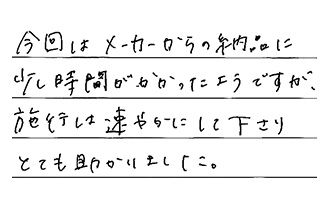 今回はメーカーからの納品に
少し時間がかかったようですが、
施行は速やかにして下さり
とても助かりました。